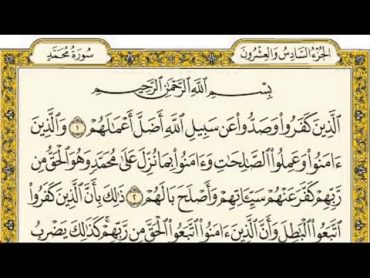 الجزء السادس والعشرون
سورة محمد
بسم الله الرحمن الرحيم
الَّذِينَ كَفَرُوا وَصَدُّوا عَن سَبِيلِ اللَّهِ أَضَلَّ أَعْمَالَهُمْ ١ وَالَّذِينَ
ءَامَنُوا وَعَمِلُوا الصَّالِحَاتِ وَءَامَنُوا بِمَا نُزِّلَ عَلَىٰ مُحَمَّدٍ وَهُوَ الْحَقُّ مِن
رَّبِّهِمْ كَفَّرَ عَنْهُمْ سَيِّئَاتِهِمْ وَأَصْلَحَ بَالَهُمْ ٢ ذَٰلِكَ بِأَنَّ الَّذِينَ كَفَرُوا
اتَّبَعُوا الْبَاطِلَ وَأَنَّ الَّذِينَ ءَامَنُوا اتَّبَعُوا الْحَقَّ مِن رَّبِّهِمْ كَذَٰلِكَ يَضْرِبُ